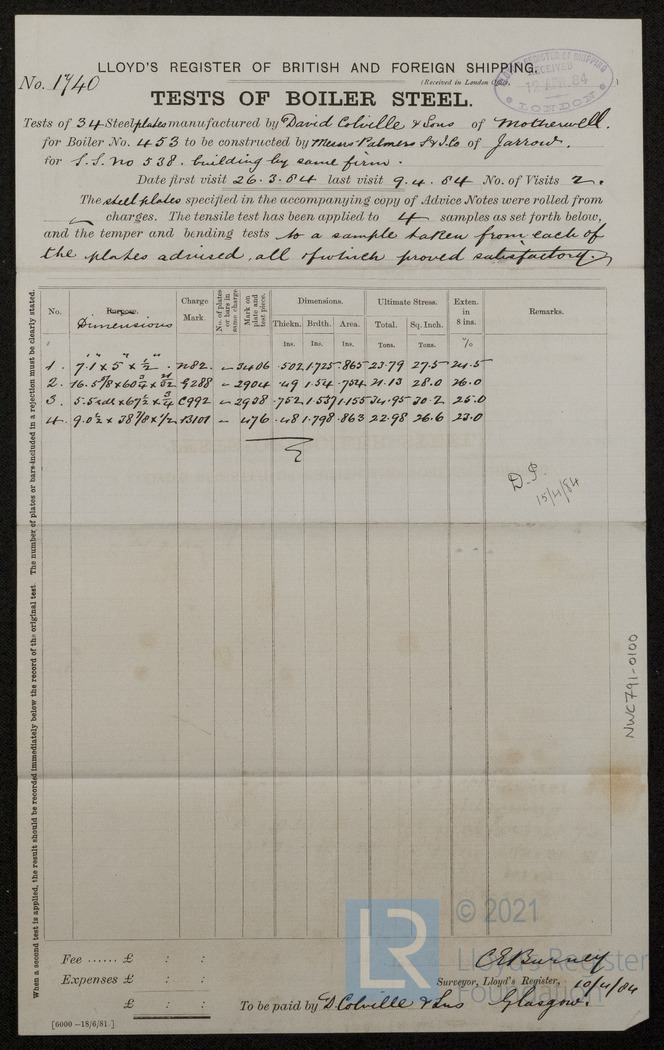 LLOYD'S REGISTER OF BRITISH AND FOREIGN SHIPPING.
No. 1740
(Received in London Office,
LLOYD'S REGISTER OF SHIPPING
RECEIVED
12 APR. 84
LONDON
TESTS OF BOILER STEEL.
Tests of 34 Steel plates manufactured by David Colville & Sons of Motherwell.
for Boiler No. 453 to be constructed by Messrs Palmers S & I. Co of Jarrow.
for S.S. No 538. building by same firm.
Date first visit 26.3.84 last visit 9.4.84 No. of Visits 2.
The steel plates specified in the accompanying copy of Advice Notes were rolled from
charges. The tensile test has been applied to 4 samples as set forth below,
and the temper and bending tests to a sample taken from each of
the plates advised, all of which proved satisfactory.
No. Purpose. Dimensions Charge Mark. No. of plates or bars in same charge Mark on plate and test piece. Dimensions. Ultimate Stress. Exten. in 8 ins. Remarks.
Thickn. Brdth. Area. Total. Sq. Inch.
Ins. Ins. Ins. Tons. Tons. %
1. 7.1 x 5 x ½ N82 - 3406 .502 1.725 .865 23.79 27.5 24.5
2. 16.5⅝ x 60¾ x 21/32 G288 - 2904 .49 1.54 .754 21.13 28.0 26.0
3. 5.5 x 67½ x ¾ C992 - 2938 .752 1.537 1.155 34.95 30.2 25.0
4. 9.0½ x 38⅞ x ½ B101 - 476 .48 1.798 .863 22.98 26.6 23.0
D.P.
15/4/84
When a second test is applied, the result should be recorded immediately below the record of the original test. The number of plates or bars included in a rejection must be clearly stated.
NWC791-0100
Fee ...... £ : :
Expenses £ : :
£ : :
C E Burney
Surveyor, Lloyd's Register, 10/4/84
To be paid by D Colville & Sns Glasgow.
[6000 –18/6/81.]
LR
© 2021
Lloyd's Register
Foundation